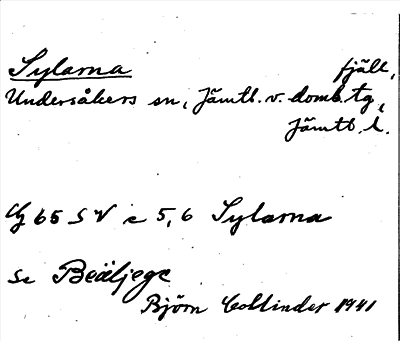 Sylarna fjäll,
Undersåkers sn, Jämtl. v. doms.tg,
Jämtl. l.
65 SV c 5,6 Sylarna
se Beäljege
Björn Collinder 1941